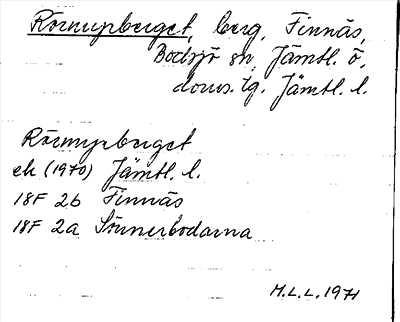 Rörmyrberget, berg, Finnäs,
Bodsjö sn, Jämtl. ö.
doms. tg. Jämtl. l.
Rörmyrberget
ek (1970) Jämtl. l.
18F 2b Finnäs
18F 2a Sönnerbodarna
M.L.L. 1971